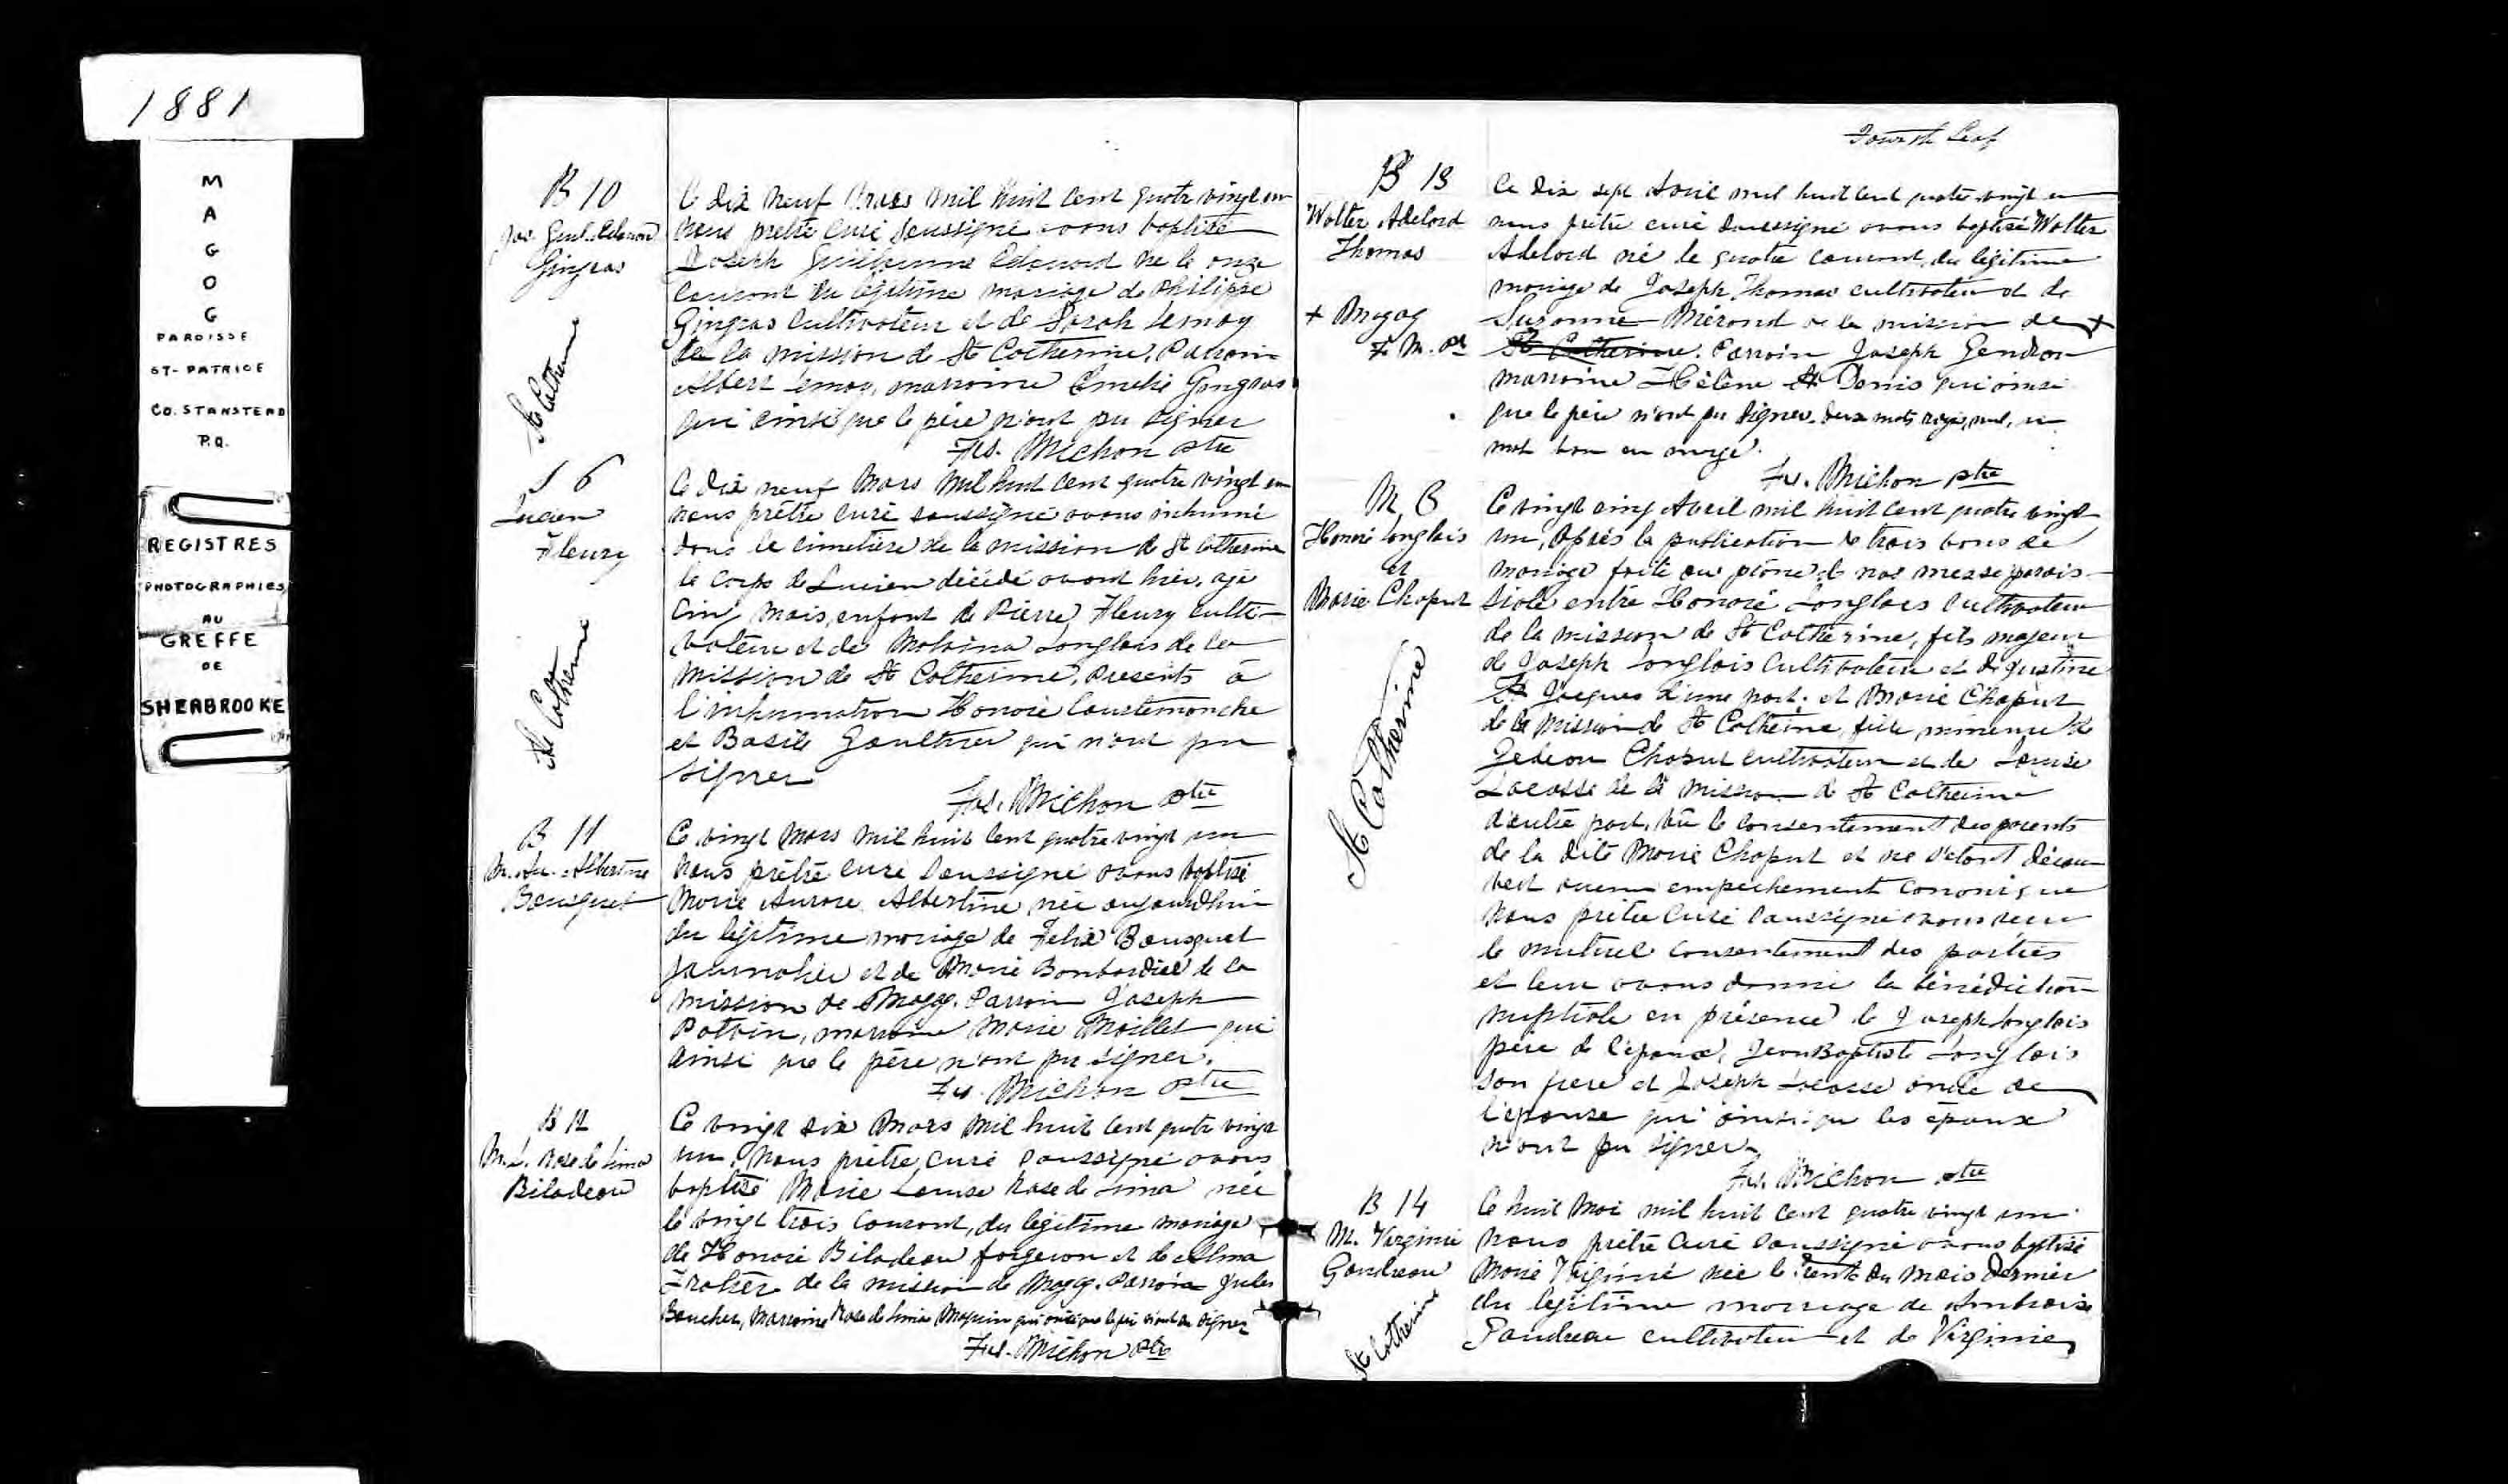 1881
M
A
G
O
G
PAROISSE
ST-PATRICE
CO. STANSTEAD
P.Q.
REGISTRES
PHOTOGRAPHIES
AU
GREFFE
DE
SHERBROOKE
B 10
Jos. Guil. Edouard
Gingras
St Catherine
Ce dix neuf Mars mil huit cent quatre vingt un
nous prêtre curé soussigné avons baptisé
Joseph Guillaume Edouard né le onze
courant du légitime mariage de Philippe
Gingras cultivateur et de Sarah Lemay
de la mission de St Catherine. Parrain
Albert Lemay, marraine Emelie Gingras
qui ainsi que le père n'ont pu signer
Frs. Michon ptre
S 6
Lucien
Fleury
St Catherine
Ce dix neuf Mars mil huit cent quatre vingt un
nous prêtre curé soussigné avons inhumé
dans le cimetière de la mission de St Catherine
le corps de Lucien décédé avant hier, agé
cinq mois, enfant de Pierre Fleury culti-
vateur et de Malvina Langlois de la
mission de St Catherine. Presents à
l'inhumation Honoré Courtemanche
et Basile Gaulthier qui n'ont pu
signer
Frs. Michon ptre
B 11
M. Au. Albertine
Bousquet
Ce vingt Mars mil huit cent quatre vingt un
nous prêtre curé soussigné avons baptisé
Marie Aurore Albertine née aujourd'hui
du légitime mariage de Felix Bousquet
journalier et de Marie Bombardier de la
mission de Magog. Parrain Joseph
Potvin, marraine Marie Maillet qui
ainsi que le père n'ont pu signer.
Frs. Michon ptre
B 12
M. L. Rose de Lima
Bilodeau
Ce vingt six Mars mil huit cent quatre vingt
un, nous prêtre curé soussigné avons
baptisé Marie Louise Rose de Lima née
le vingt trois courant, du légitime mariage
de Honoré Bilodeau forgeron et de Alma
de la mission de Magog. Parrain Jules
Boucher, marraine Rose de Lima qui ainsi que le père n'ont pu signer
Frs. Michon ptre
Fourth Leaf
B 13
Walter Adelord
Thomas
+ Magog
F. M. Ptr
Ce dix sept Avril mil huit cent quatre vingt un
nous prêtre curé soussigné avons baptisé Walter
Adelord né le quatre courant, du légitime
mariage de Joseph Thomas cultivateur et de
Suzanne de la mission de +
St Catherine. Parrain Joseph Gendron
marraine Hélène St Denis qui ainsi
que le père n'ont pu signer. Deux mots rayés, nul, un
mot bon en marge.
Frs. Michon ptre
M 6
Honoré Langlois
et
Marie Chaput
St Catherine
Ce vingt cinq Avril mil huit cent quatre vingt
un, après la publication de trois bans de
mariage faite au prône de nos messe parois-
siale entre Honoré Langlois cultivateur
de la mission de St Catherine, fils majeur
de Joseph Langlois cultivateur et de Justine
St Jacques d'une part; et Marie Chaput
de la mission de St Catherine, fille mineure de
Gedeon Chaput cultivateur et de Louise
Lacasse de la mission de St Catherine
d'autre part, vû le consentement des parents
de la dite Marie Chaput et ne s'étant décou-
vert aucun empechement canonique
nous prêtre curé soussigné avons reçu
le mutuel consentement des parties
et leur avons donné la bénédiction
nuptiale en présence de Joseph Langlois
père de l'époux, Jean Baptiste Langlois
son frere et Joseph Lacasse oncle de
l'épouse qui ainsi que les époux
n'ont pu signer.
Frs. Michon ptre
B 14
M. Virginie
Gaudreau
St Catherine
Ce huit Mai mil huit cent quatre vingt un
nous prêtre curé soussigné avons baptisé
Marie Virginie née le trente du mois dernier
du légitime mariage de Ambroise
Gaudreau cultivateur et de Virginie